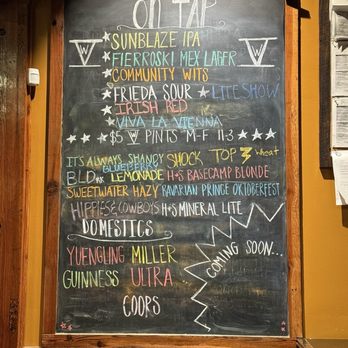 ON TAP
SUNBLAZE IPA
FIERROSKI MEX LAGER
COMMUNITY WITS
FRIEDA SOUR ★ LITE SHOW
IRISH RED
VIVA LA VIENNA
★ ★ ★ $5 W PINTS M-F 11-3 ★ ★ ★
IT'S ALWAYS SHANDY SHOCK TOP wheat
BLUEBERRY
BLD LEMONADE H+S BASECAMP BLONDE
SWEETWATER HAZY BAVARIAN PRINCE OKTOBERFEST
HIPPIES & COWBOYS H+S MINERAL LITE
DOMESTICS
YUENGLING MILLER
GUINNESS ULTRA
COORS
COMING SOON...